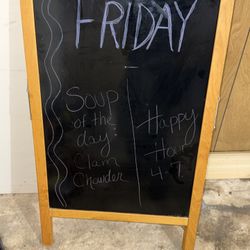 FRIDAY
Soup
of the
day:
Clam
Chowder
Happy
Hour
4-7